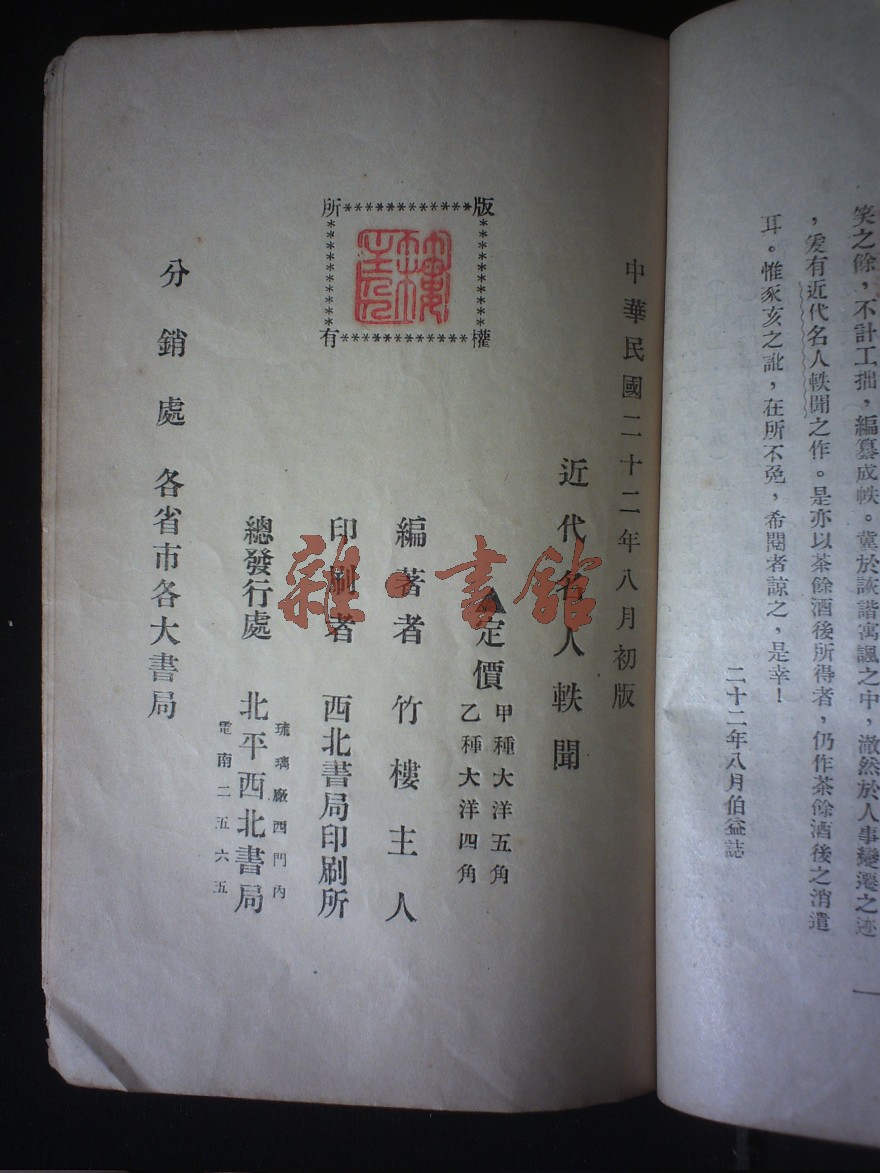 笑之餘，不計工拙，編纂成帙。冀於詼諧寓諷之中，澈然於人事變遷之迹
，爰有近代名人軼聞之作。是亦以茶餘酒後所得者，仍作茶餘酒後之消遣
耳。惟豕亥之訛，在所不免，希閱者諒之，是幸！
二十二年八月伯益誌
一
中華民國二十二年八月初版
近代名人軼聞
▲定價
甲種大洋五角
乙種大洋四角
版權所有
編著者 竹樓主人
印刷者 西北書局印刷所
總發行處 北平西北書局
琉璃廠西門內
電南二五六五
分銷處 各省市各大書局
雜·書館